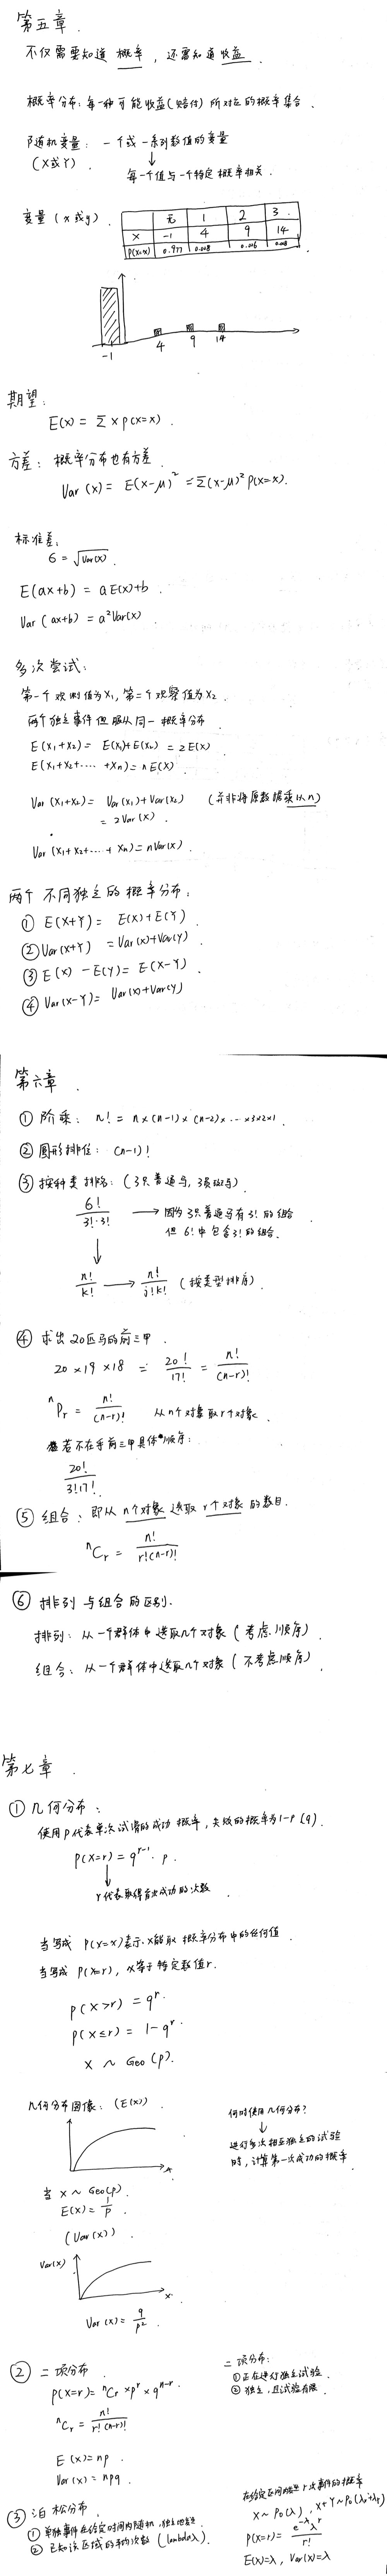 第五章.
不仅需要知道概率, 还需知道收益.
概率分布: 每一种可能收益(赔付)所对应的概率集合.
随机变量: 一个或一系列数值的变量
(X或Y). ↓
每一个值与一个特定概率相关.
变量 (x或y).
无 1 2 3.
x -1 4 9 14
P(X=x) 0.977 0.008 0.006 0.008
-1 4 9 14
期望:
E(x) = Σ x P(X=x).
方差: 概率分布也有方差.
Var(x) = E(x-μ)² = Σ(x-μ)² P(X=x).
标准差:
σ = √Var(x).
E(ax+b) = aE(x)+b.
Var(ax+b) = a²Var(x).
多次尝试:
第一个观测值为X₁, 第二个观察值为X₂.
两个独立事件但服从同一概率分布.
E(X₁+X₂) = E(X₁)+E(X₂) = 2E(X)
E(X₁+X₂+⋯⋯+Xn) = nE(X).
Var(X₁+X₂) = Var(X₁)+Var(X₂) (并非将原数据乘以n)
= 2Var(x).
Var(X₁+X₂+⋯+Xn) = nVar(x).
两个不同独立的概率分布:
① E(X+Y) = E(X)+E(Y).
② Var(X+Y) = Var(x)+Var(y)
③ E(x) - E(y) = E(X-Y).
④ Var(X-Y) = Var(x)+Var(y)
第六章.
① 阶乘: n! = n×(n-1)×(n-2)×⋯×3×2×1.
② 圆形排位: (n-1)!
③ 按种类排名: (3只普通马, 3只斑马)
6!/(3!·3!) → 因为3只普通马有3!的组合
但6!中包含3!的组合.
↓
n!/k! → n!/(j!k!) (按类型排序).
④ 求出20匹马的前三甲.
20×19×18 = 20!/17! = n!/(n-r)!
ⁿPr = n!/(n-r)! 从n个对象取r个对象.
若不在乎前三甲具体顺序:
20!/(3!17!).
⑤ 组合: 即从n个对象选取r个对象的数目.
ⁿCr = n!/(r!(n-r)!)
⑥ 排列与组合的区别.
排列: 从一个群体中选取几个对象 (考虑顺序).
组合: 从一个群体中选取几个对象 (不考虑顺序).
第七章.
① 几何分布:
使用P代表单次试验的成功概率, 失败的概率为1-P (q).
P(X=r) = q^(r-1)·p.
↓
r代表取得首次成功的次数.
当写成 P(X=x)表示, x能取概率分布中的任何值.
当写成 P(X=r), x等于特定数值r.
P(X>r) = q^r.
P(X≤r) = 1-q^r.
X ~ Geo(p).
几何分布图像: (E(x)).
x
何时使用几何分布?
↓
进行多次相互独立的试验
时, 计算第一次成功的概率
当 X ~ Geo(p).
E(x) = 1/p.
(Var(x)).
Var(x)
x
Var(x) = q/p².
② 二项分布.
P(X=r) = ⁿCr × p^r × q^(n-r).
ⁿCr = n!/(r!(n-r)!)
E(x) = np.
Var(x) = npq.
二项分布:
① 正在进行独立试验.
② 独立, 且试验有限.
③ 泊松分布.
① 单独事件在给定时间内随机, 独立地发生.
② 已知该区域的平均次数 (lambda λ).
在给定区间内发生r次事件的概率
X ~ Po(λ), X+Y ~ Po(λx+λy)
P(X=r) = e^(-λ)λ^r/r!
E(X)=λ, Var(x)=λ